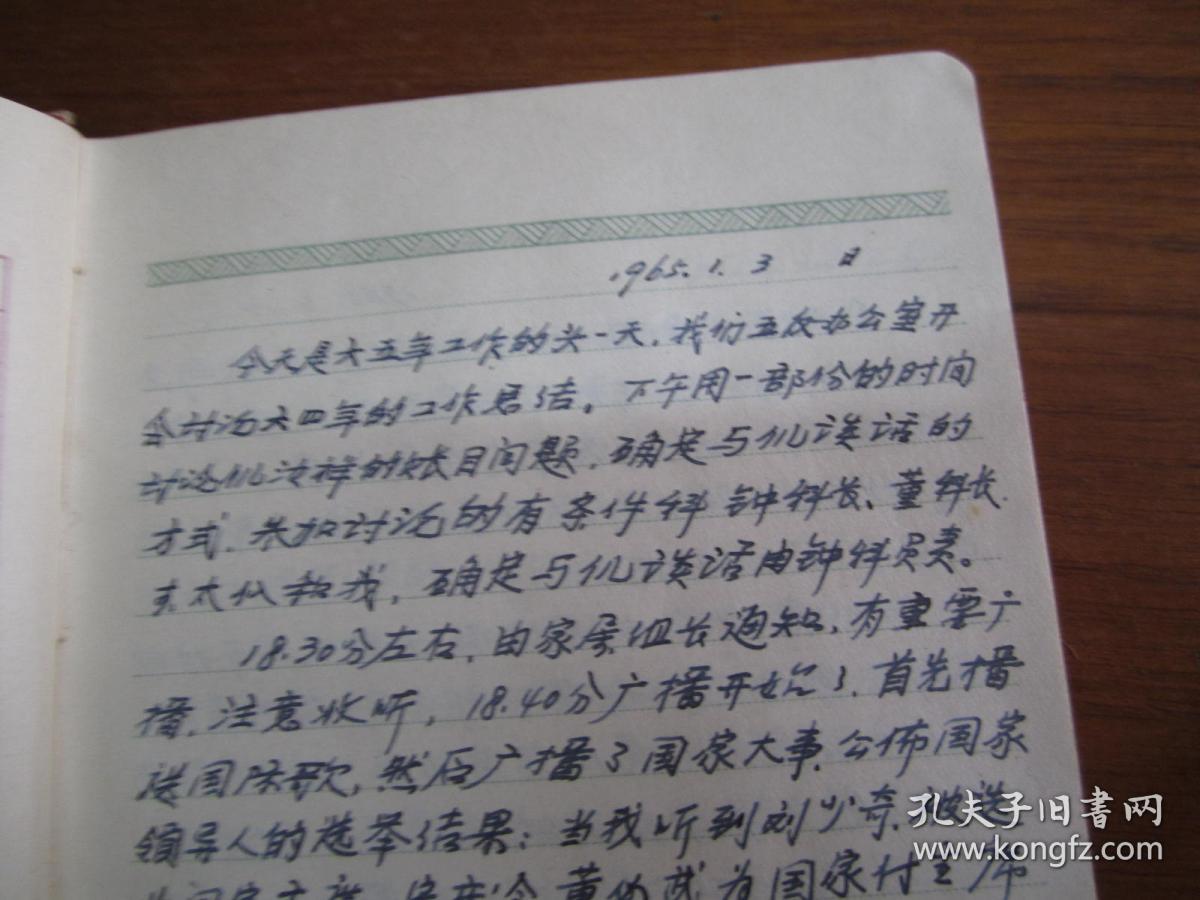 1965.1.3 日
今天是六五年工作的头一天,我们五反办公室开
会讨论六四年的工作总结。下午用一部份的时间
讨论仉 祥的帐目问题,确定与仉谈话的
方式,参加讨论的有条件科钟科长、董科长
和我,确定与仉谈话由钟科负责。
18.30分左右,由家属组长通知,有重要广
播,注意收听,18.40分广播开始了,首先播
送国际歌,然后广播了国家大事,公佈国家
领导人的选举结果:当我听到刘少奇被选
为国家主席,宋庆令董必武为国家付主席
孔夫子旧书网
www.kongfz.com